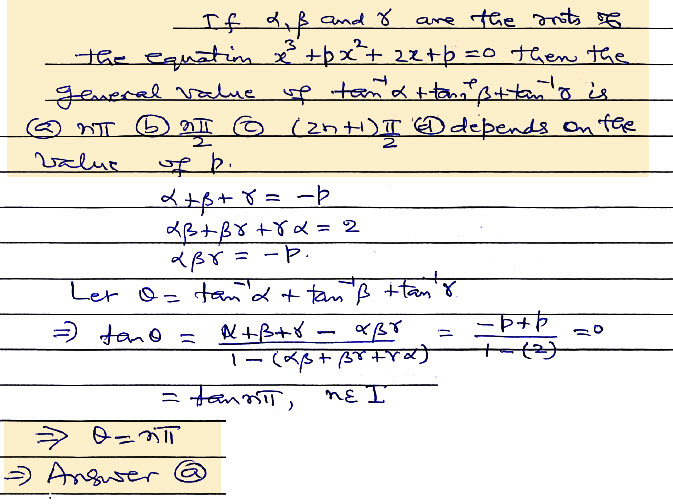 If α, β and γ are the roots of
the equation x³ + px² + 2x + p = 0 then the
general value of tan⁻¹α + tan⁻¹β + tan⁻¹γ is
(a) nπ (b) nπ/2 (c) (2n+1)π/2 (d) depends on the
value of p.
α + β + γ = -p
αβ + βγ + γα = 2
αβγ = -p.
Let θ = tan⁻¹α + tan⁻¹β + tan⁻¹γ
⇒ tanθ = (α + β + γ - αβγ)/(1 - (αβ + βγ + γα)) = (-p + p)/(1 - (2)) = 0
= tan nπ, n ε I
⇒ θ = nπ
⇒ Answer (a)